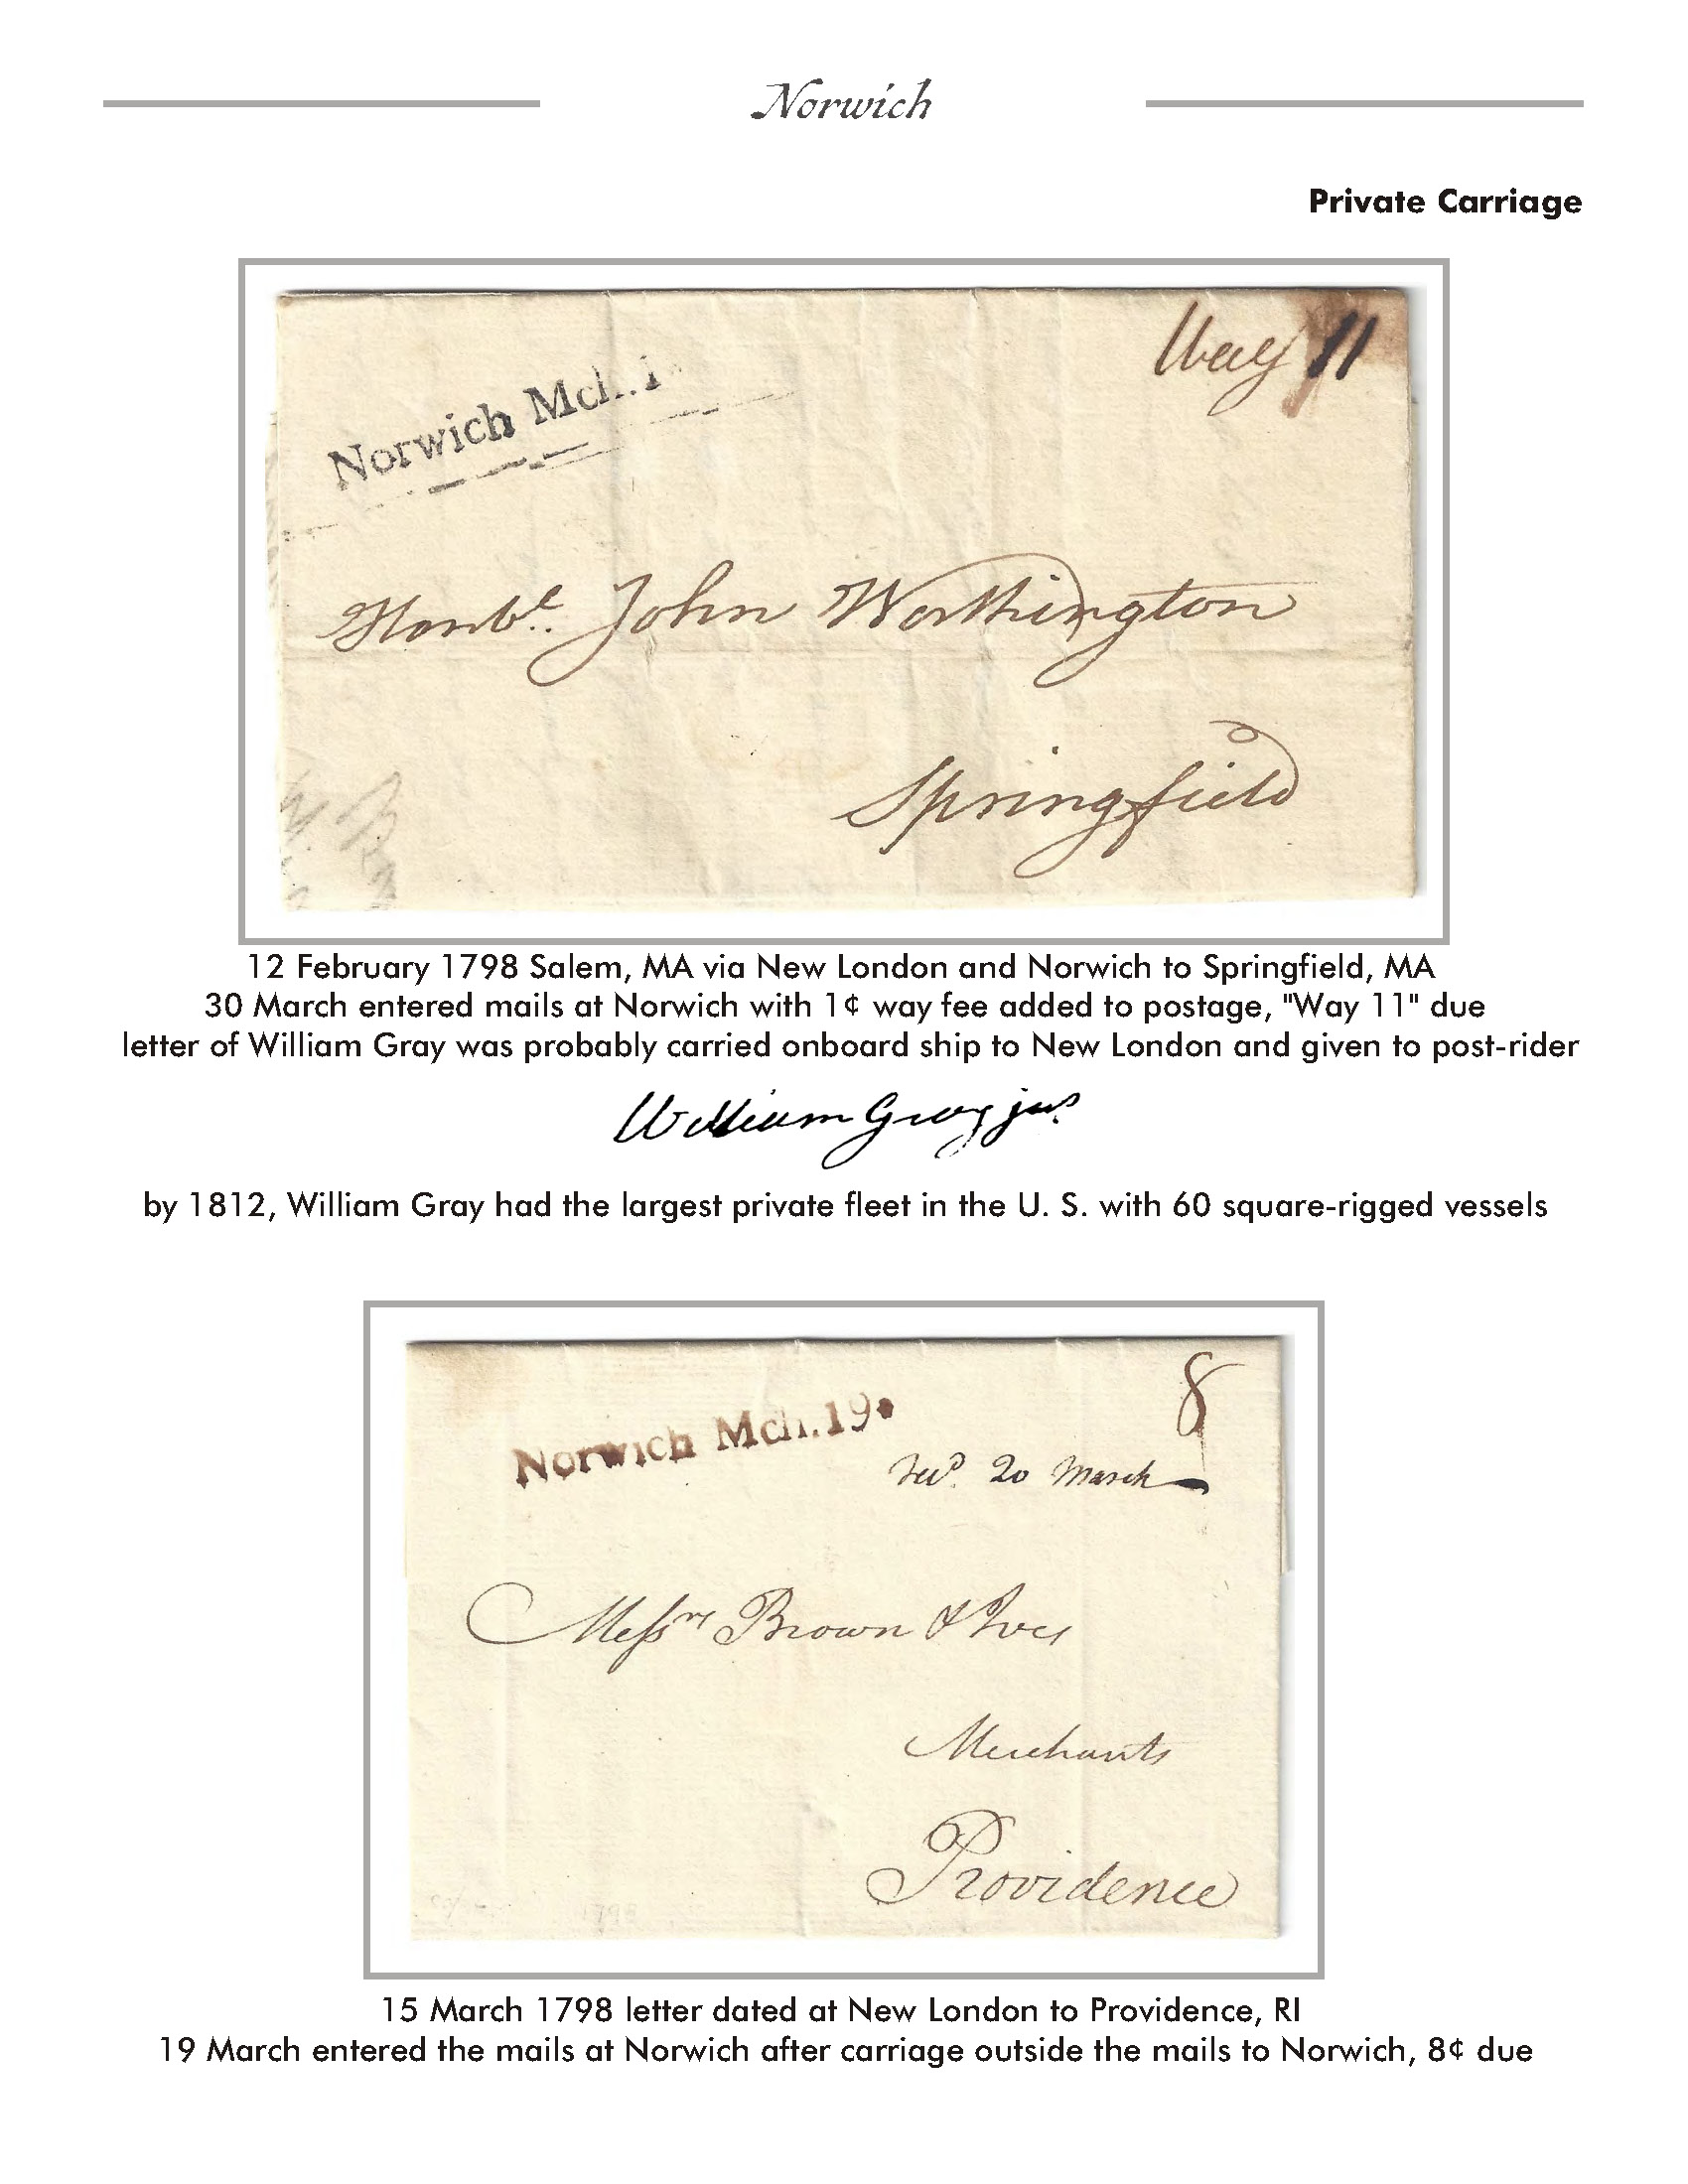 Norwich
Private Carriage
Way 11
Norwich Mch. 1
Honble. John Worthington
Springfield
12 February 1798 Salem, MA via New London and Norwich to Springfield, MA
30 March entered mails at Norwich with 1¢ way fee added to postage, "Way 11" due
letter of William Gray was probably carried onboard ship to New London and given to post-rider
William Gray junr
by 1812, William Gray had the largest private fleet in the U. S. with 60 square-rigged vessels
8
Norwich Mch. 19
Recd. 20 March
Messrs Brown & Ives
Merchants
Providence
15 March 1798 letter dated at New London to Providence, RI
19 March entered the mails at Norwich after carriage outside the mails to Norwich, 8¢ due